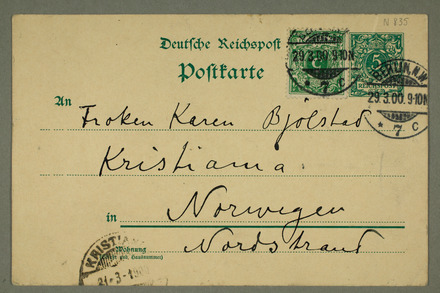 N 835
Deutsche Reichspost
Postkarte
5
REICHSPOST
29.3.00. 9-10N
* 7 c
BERLIN N.W.
29.3.00. 9-10N
* 7 c
An
Froken Karen Bjolstad
Kristiania
in Norwegen
Nordstrand
Wohnung
KRISTIANIA
31-3-